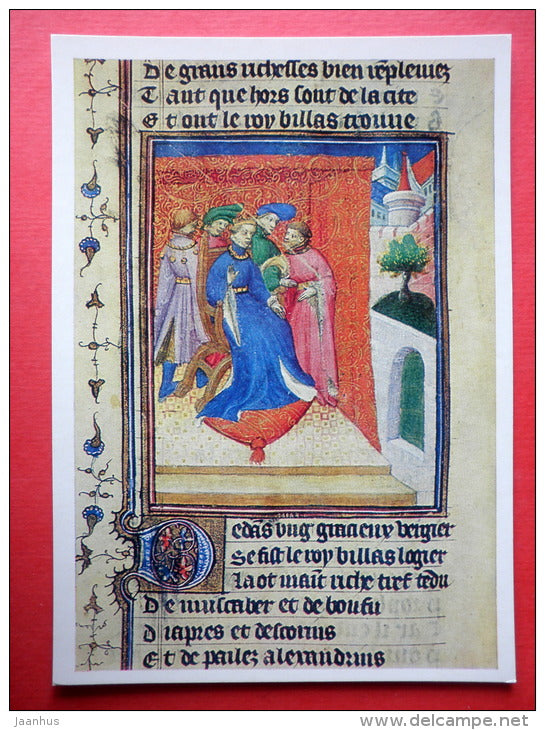 De grans richesses bien rēpleniez
Tant que hors sont de la cite
Et ont le roy billas trouue
Dedās vng gracieux vergier
Se fist le roy billas logier
La ot maīt riche tref tēdu
De musciber et de boufu
Diapres et descorins
Et de pailez alexandrins
Jaanhus
www.delcampe.net